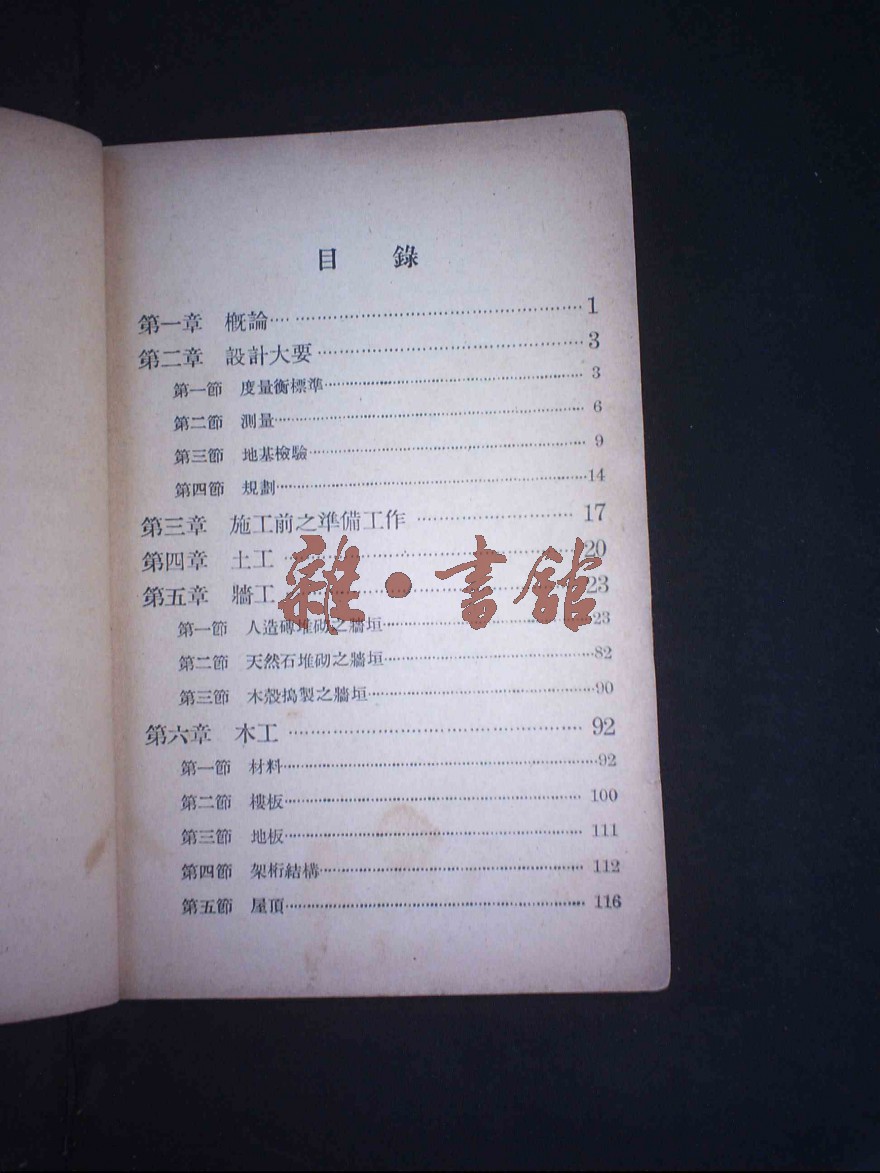 目　錄
第一章　槪論…………………………………………1
第二章　設計大要……………………………………3
第一節　度量衡標準…………………………………3
第二節　測量…………………………………………6
第三節　地基檢驗……………………………………9
第四節　規劃…………………………………………14
第三章　施工前之準備工作…………………………17
第四章　土工…………………………………………20
第五章　牆工…………………………………………23
第一節　人造磚堆砌之牆垣…………………………23
第二節　天然石堆砌之牆垣…………………………82
第三節　木殼搗製之牆垣……………………………90
第六章　木工…………………………………………92
第一節　材料…………………………………………92
第二節　樓板…………………………………………100
第三節　地板…………………………………………111
第四節　架桁結構……………………………………112
第五節　屋頂…………………………………………116
雜·書館